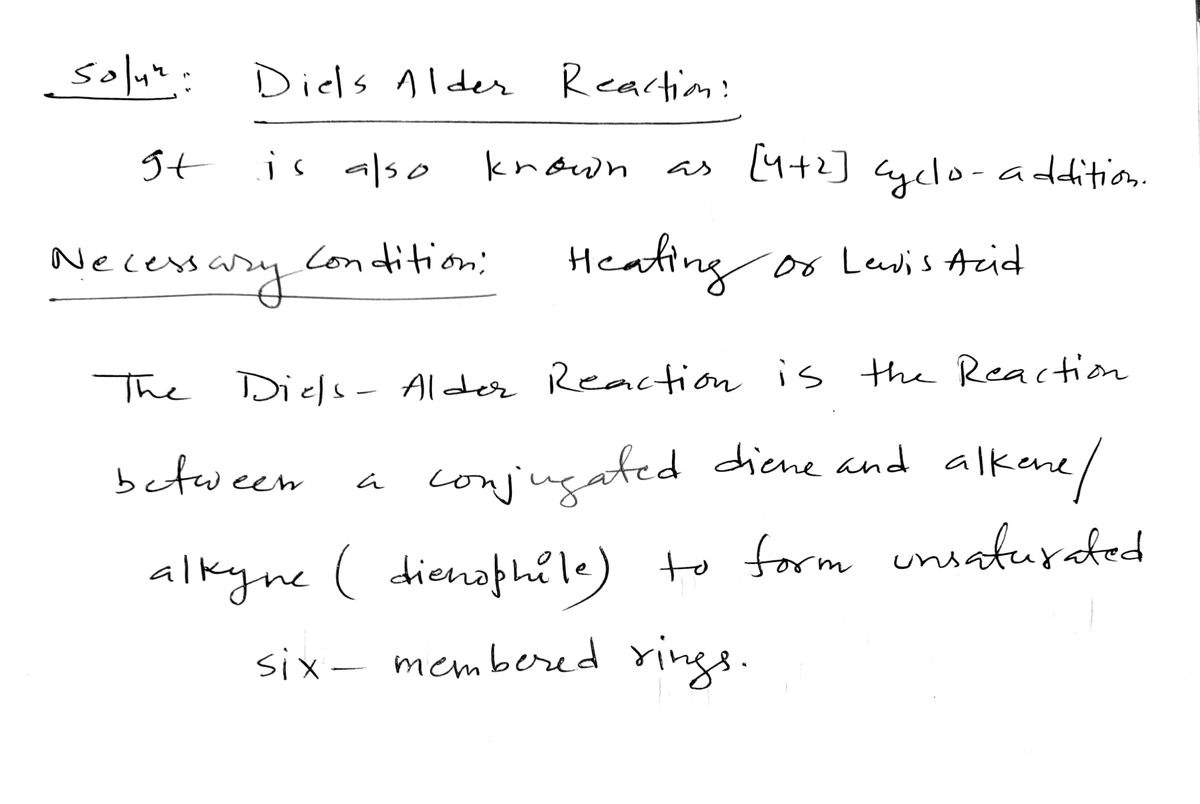 Solun: Diels Alder Reaction:
It is also known as [4+2] cyclo-addition.
Necessary Condition: Heating or Lewis Acid
The Diels-Alder Reaction is the Reaction
between a conjugated diene and alkene/
alkyne (dienophile) to form unsaturated
six-membered rings.